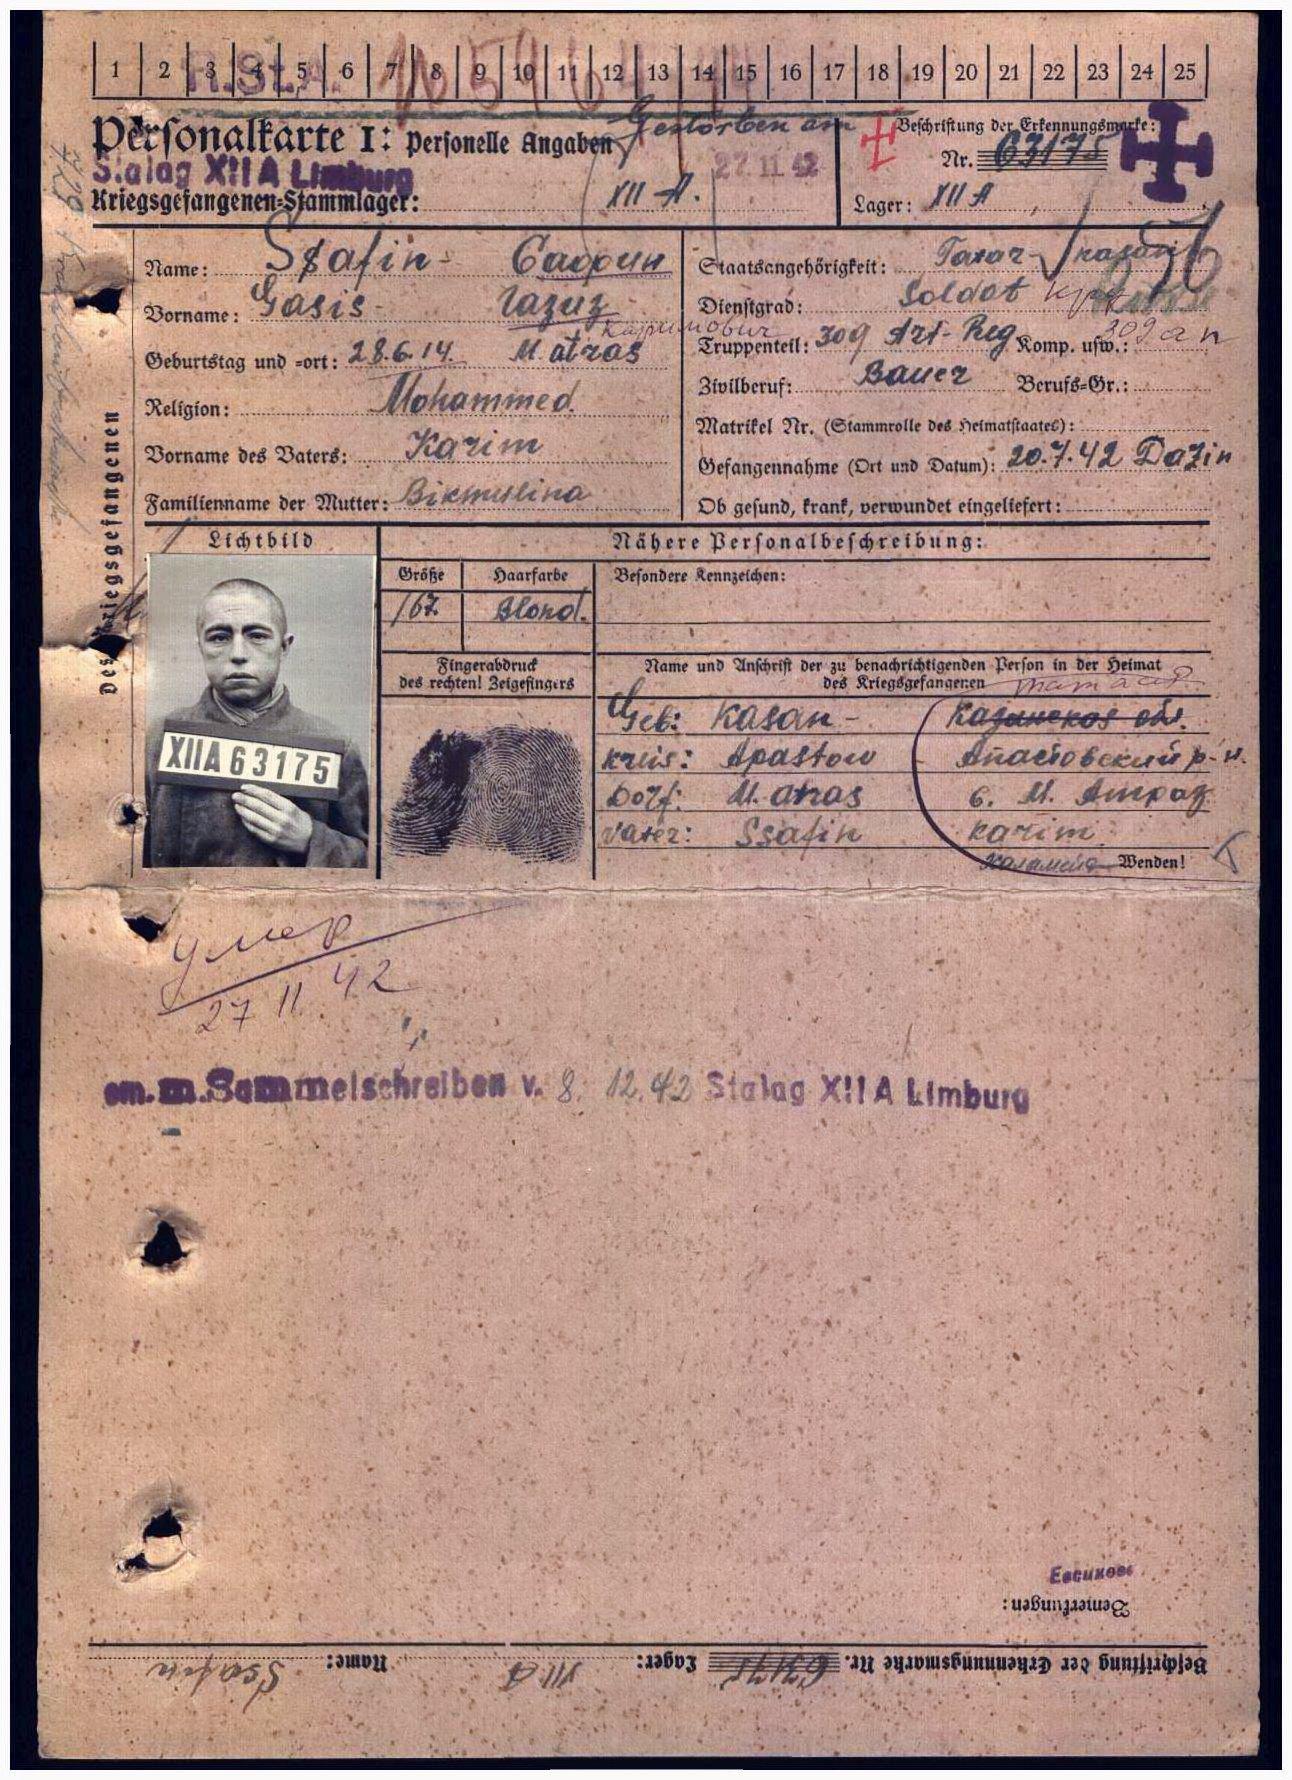 1 2 3 4 5 6 7 8 9 10 11 12 13 14 15 16 17 18 19 20 21 22 23 24 25
R.St.A.
Personalkarte I: Personelle Angaben
Gestorben am
27. 11. 42
Beschriftung der Erkennungsmarke:
Nr. 63175
Stalag XII A Limburg
Kriegsgefangenen-Stammlager: XII A.
Lager: XII A
Des Kriegsgefangenen
Name: Ssafin - Сафин
Vorname: Gasis - Газиз
Каримович
Geburtstag und -ort: 28.6.14. M. atras
Religion: Mohammed.
Vorname des Vaters: Karim
Familienname der Mutter: Bikmulina
Staatsangehörigkeit: Tatar - Kasan
Dienstgrad: Soldat
Truppenteil: 309 Art-Reg Komp. usw.: 309 ап
Zivilberuf: Bauer Berufs-Gr.:
Matrikel Nr. (Stammrolle des Heimatstaates):
Gefangennahme (Ort und Datum): 20.7.42 Dazin
Ob gesund, krank, verwundet eingeliefert:
Lichtbild
Nähere Personalbeschreibung:
Größe Haarfarbe Besondere Kennzeichen:
167. Blond.
Fingerabdruck
des rechten! Zeigefingers
Name und Anschrift der zu benachrichtigenden Person in der Heimat
des Kriegsgefangenen
XIIA 63175
Geb: Kasan - Казанскоя обл.
Kreis: Apastow Апастовский р-н.
Dorf: M. atras б. М. Атраз
Vater: Ssafin Karim
Wenden!
умер
27 11 42
em. m. Sammelschreiben v. 8. 12. 42 Stalag XII A Limburg
Bemerkungen:
Beschriftung der Erkennungsmarke Nr. 63175 Lager: XII A Name: Ssafin